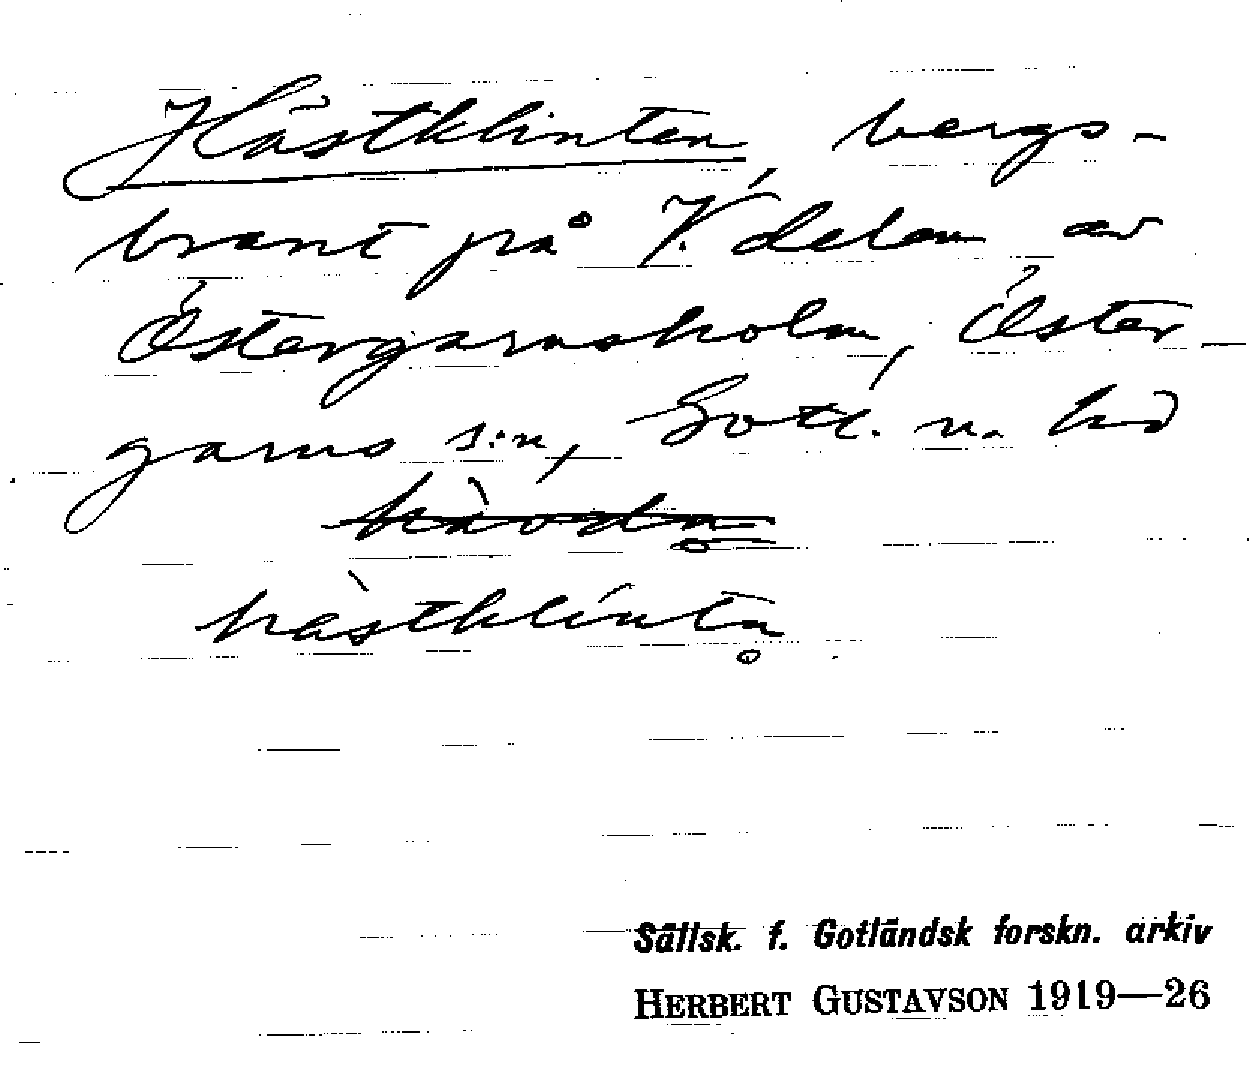 Hästklinten, bergs-
brant på V. delen av
Östergarnsholm, Öster-
garns s:n, Gotl. n. hd
hästklinta
Sällsk. f. Gotländsk forskn. arkiv
HERBERT GUSTAVSON 1919—26